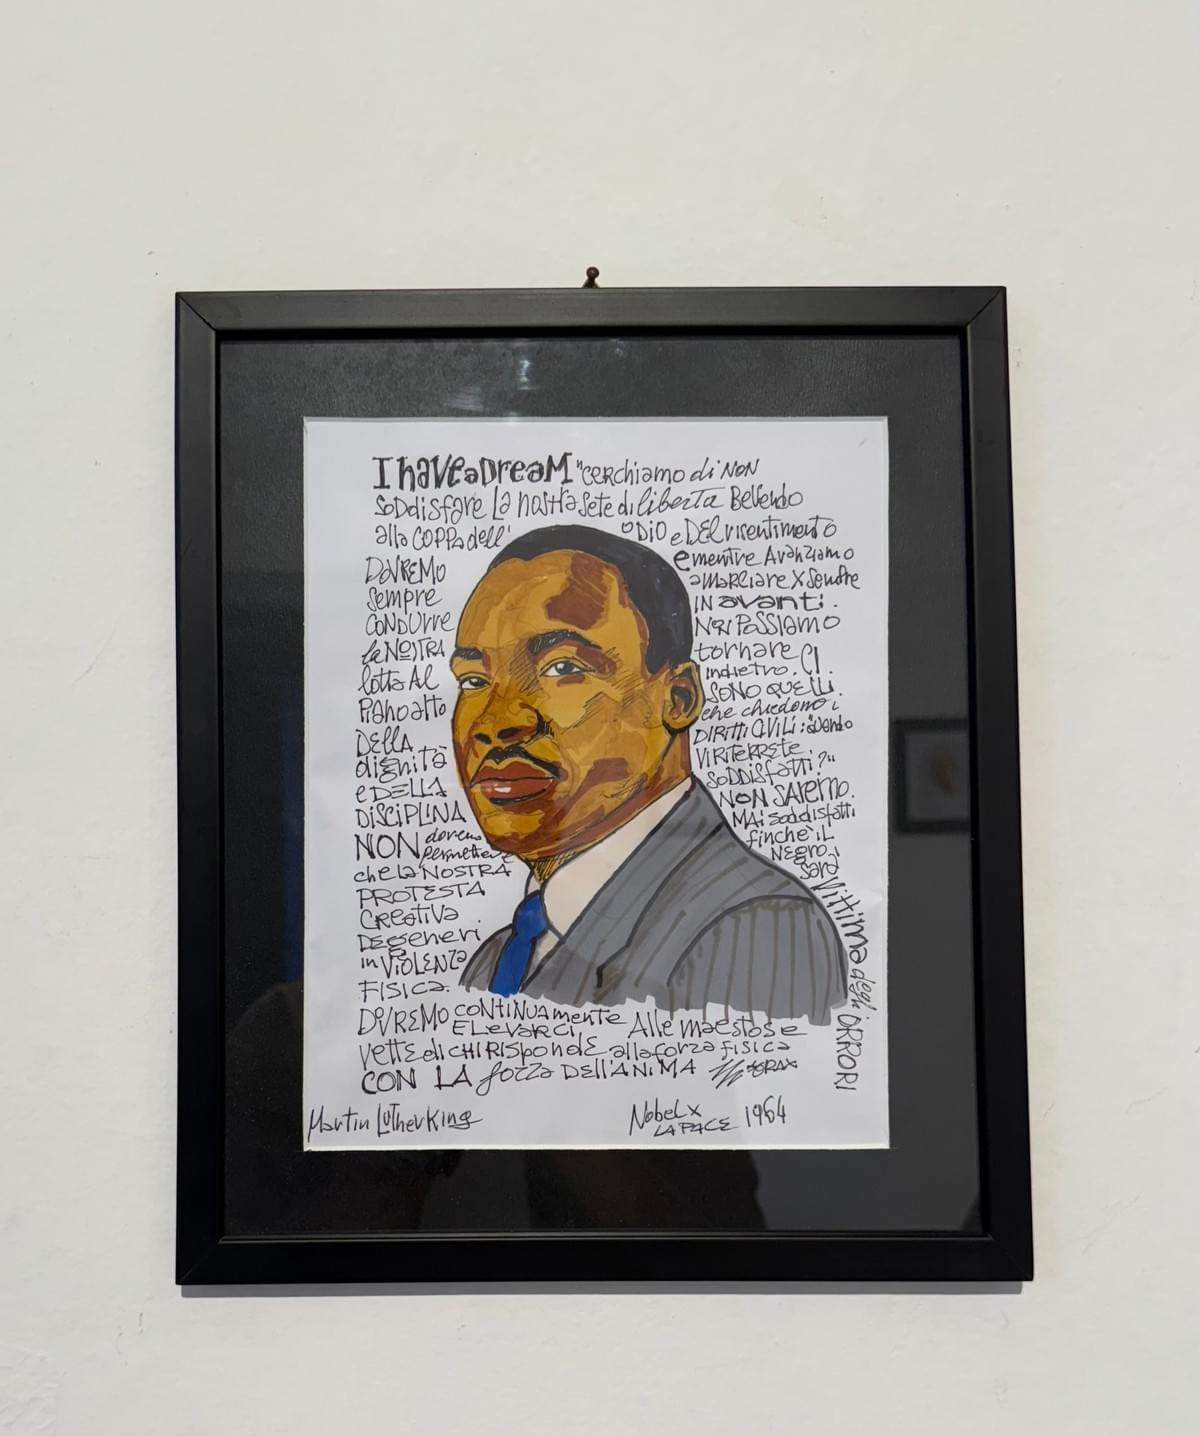 I have a Dream "cerchiamo di NON
soddisfare la nostra sete di libertà Bevendo
alla coppa dell'
odio e DEL risentimento
DOVREMO
sempre
CONDURRE
la NOSTRA
lotta Al
Pianoalto
DELLA
dignità
e DELLA
DISCIPLINA
NON dovremo
permettere
che la NOSTRA
PROTESTA
Creativa
DEgeneri
in VIOLENZA
FISICA.
DOVREMO CONTINUAmente
ELEVARCI, Alle maestose
vette di CHI RISponde alla forza fisica
CON LA forza DELL'ANIMA
e mentre Avanziamo
a marciare X sempre
IN avanti.
Non Possiamo
tornare
indietro. CI
SONO QUELLI
che chiedono i
DIRITTI CIVILI: "Quando
VI RITERRETE
SODDISFATTI?"
NON SAREMO
MAi soddisfatti
finchè il
Negro
sarà
Vittima degli ORRORI
Martin Luther King
Nobel x
LA PACE 1964